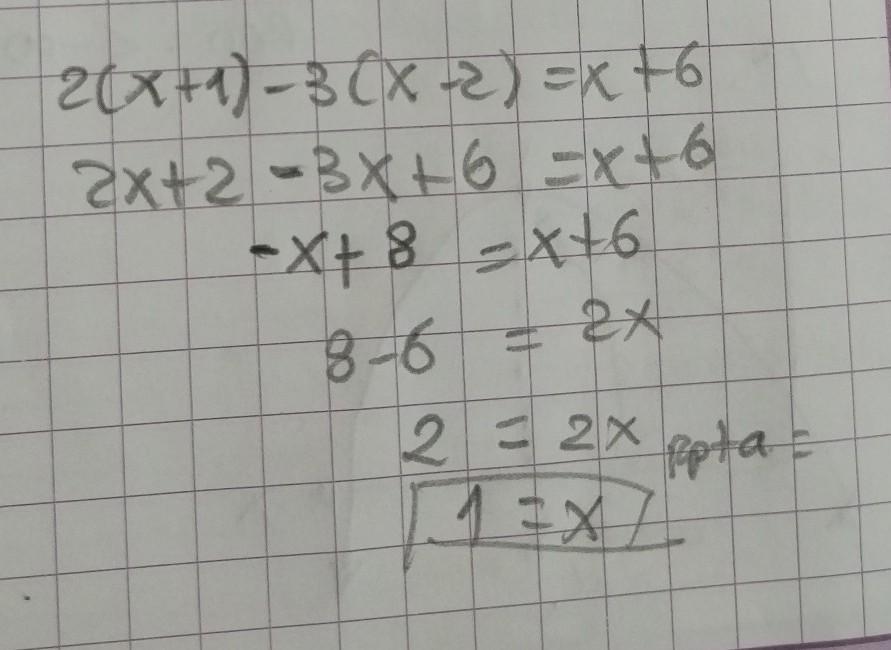 2(x+1)-3(x-2)=x+6
2x+2-3x+6=x+6
-x+8=x+6
8-6=2x
2=2x Rpta=
1=x